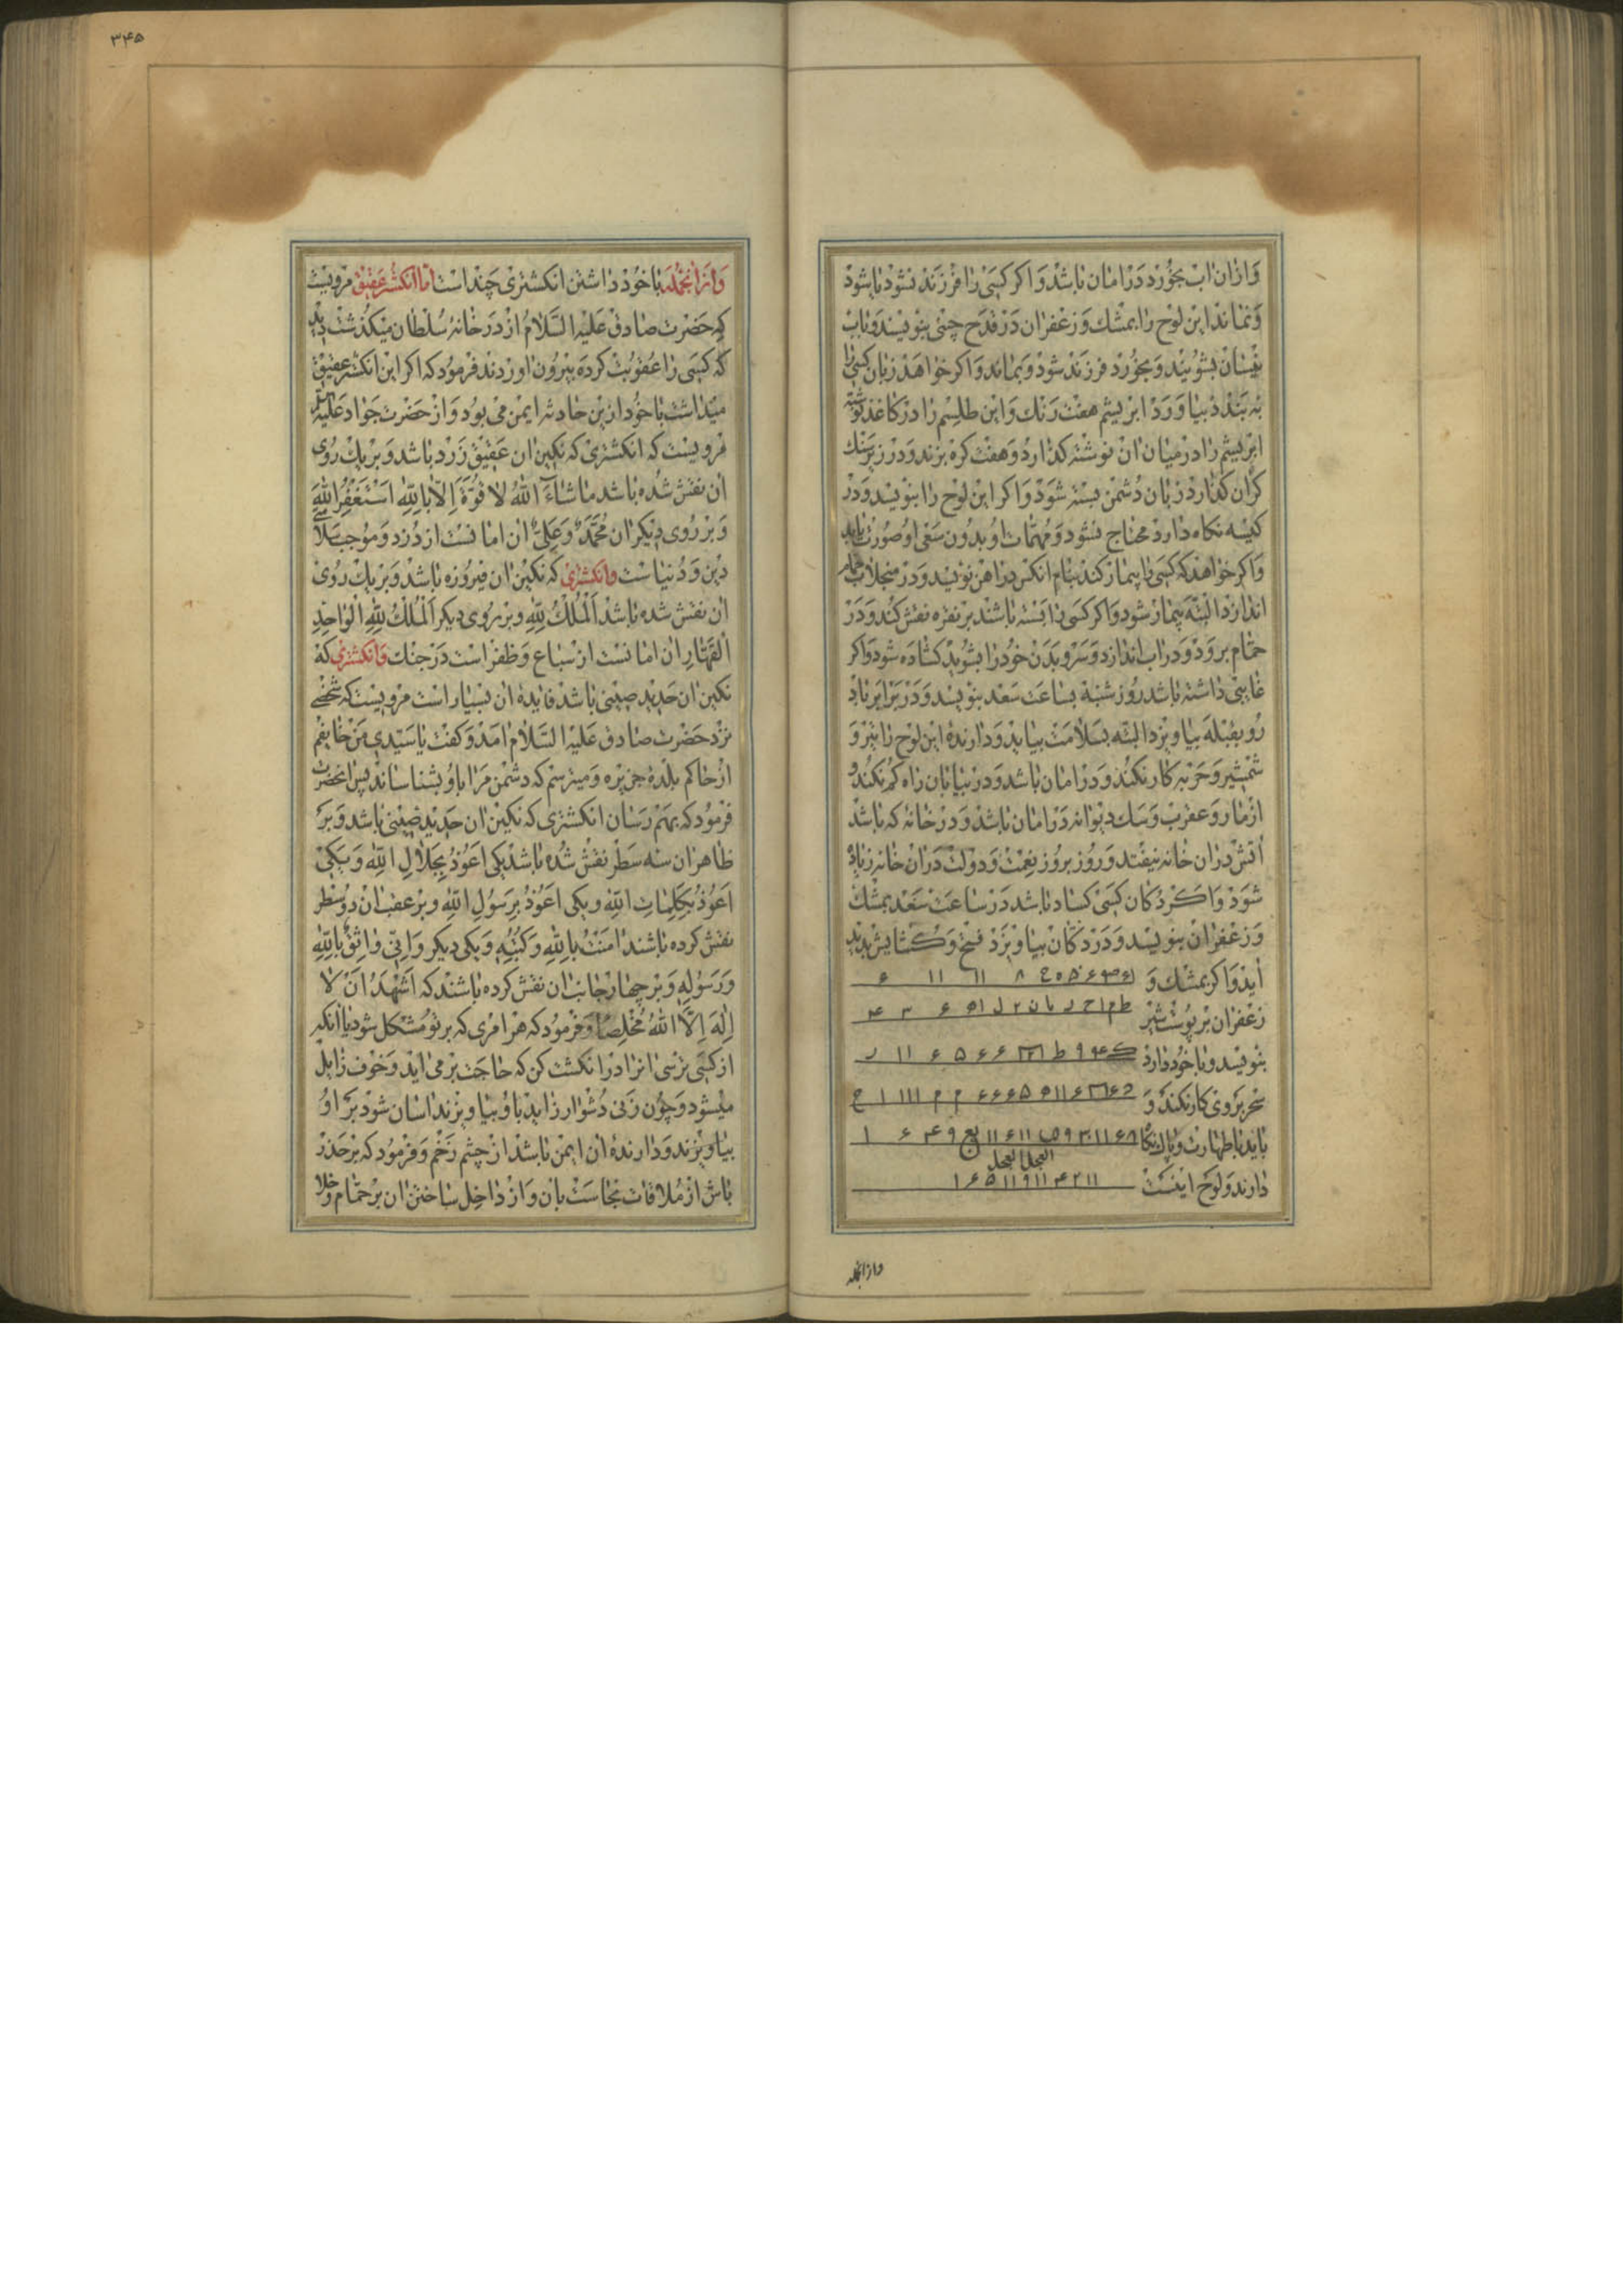 وازان اب بخورد در امان باشد واکر کسی را فرزند نشود یا شود
ونماند این لوح را بمشک وزعفران در قدح چینی بنویسند وباب
نیسان بشویند وبخورد فرزند شود وبماند واکر خواهد زبان کسی را
به بندد بیاورد ابریشم هفت رنک واین طلسم را در کاغذ نوشته
ابریشم را در میان ان نوشته کذارد وهفت کره بزند ودر زیر سنک
کران کذارد زبان دشمن بسته شود واکر این لوح را بنویسد ودر
کیسه نکاه دارد محتاج نشود ومهمات او بدون سعی او صورت یابد
واکر خواهد که کسی را بیمار کند بنام انکس در اهن نویسد ودر منجلاب حمام
اندازد البته بیمار شود واکر کسی را بسته باشند بر نقره نقش کند ودر
حمام برود ودر اب اندازد وسر وبدن خود را بشوید کشاده شود واکر
غایبی داشته باشد روز شنبه بساعت سعد بنویسد ودر برابر باد
رو بقبله بیاویزد البته بسلامت بیاید ودارندهٔ این لوح را تیر و
شمشیر وحربه کار نکند ودر امان باشد ودر بیابان راه کم نکند و
از مار وعقرب وسک دیوانه در امان باشد ودر خانهٔ که باشد
اتش دران خانه نیفتد وروز بروز نعمت ودولت دران خانه زیاده
شود واکر دکان کسی کساد باشد در ساعت سعد بمشک
وزعفران بنویسد ودر دکان بیاویزد فتح وکشایش پدید
اید واکر بمشک و
زعفران بر پوست شیر
بنویسد وبا خود دارد
سحر بروی کار نکند و
باید با طهارت وپاک نکا
دارند ولوح اینست
وازانجمله
۳۴۵
وازانجمله با خود داشتن انکشتری چند است اما انکشتر عقیق مرویست
که حضرت صادق علیه السلام از در خانهٔ سلطان میکذشت دید
که کسی را عقوبت کرده بیرون اوردند فرمود که اکر این انکشتر عقیق
میداشت با خود ازین حادثه ایمن می بود واز حضرت جواد علیه السلم
مرویست که انکشتری که نکین ان عقیق زرد باشد وبر یک روی
ان نقش شده باشد ما شاء الله لا قوة الا بالله استغفر الله
وبر روی دیکر ان محمد وعلی ان امانست از دزد وموجب سلامتی
دین ودنیاست وانکشتری که نکین ان فیروزه باشد وبر یک روی
ان نقش شده باشد الملک لله وبر روی دیکر الملک لله الواحد
القهار ان امانست از سباع وظفر است در جنک وانکشتری که
نکین ان حدید صینی باشد فایدهٔ ان بسیار است مرویست که شخصی
نزد حضرت صادق علیه السلام امد وکفت یا سیدی من خایفم
از حاکم بلدهٔ جزیره ومیترسم که دشمن مرا باو بشناساند پس انحضرت
فرمود که بهم رسان انکشتری که نکین ان حدید صینی باشد وبر
ظاهر ان سه سطر نقش شده باشد یکی اعوذ بجلال الله ویکی
اعوذ بکلمات الله ویکی اعوذ برسول الله وبر عقب ان دو سطر
نقش کرده باشند امنت بالله وکتبه ویکی دیکر وانی واثق بالله
ورسوله وبر چهار جانب ان نقش کرده باشند که اشهد ان لا
اله الا الله مخلصا وفرمود که هر امری که بر تو مشکل شود یا انکه
از کسی ترسی انرا در انکشت کن که حاجت بر می اید وخوف زایل
میشود وچون زنی دشوار زاید باو بیاویزند اسان شود بر او
بیاویزند ودارندهٔ ان ایمن باشد از چشم زخم وفرمود که بر حذر
باش از ملاقات نجاست بان واز داخل ساختن ان بر حمام وخلا